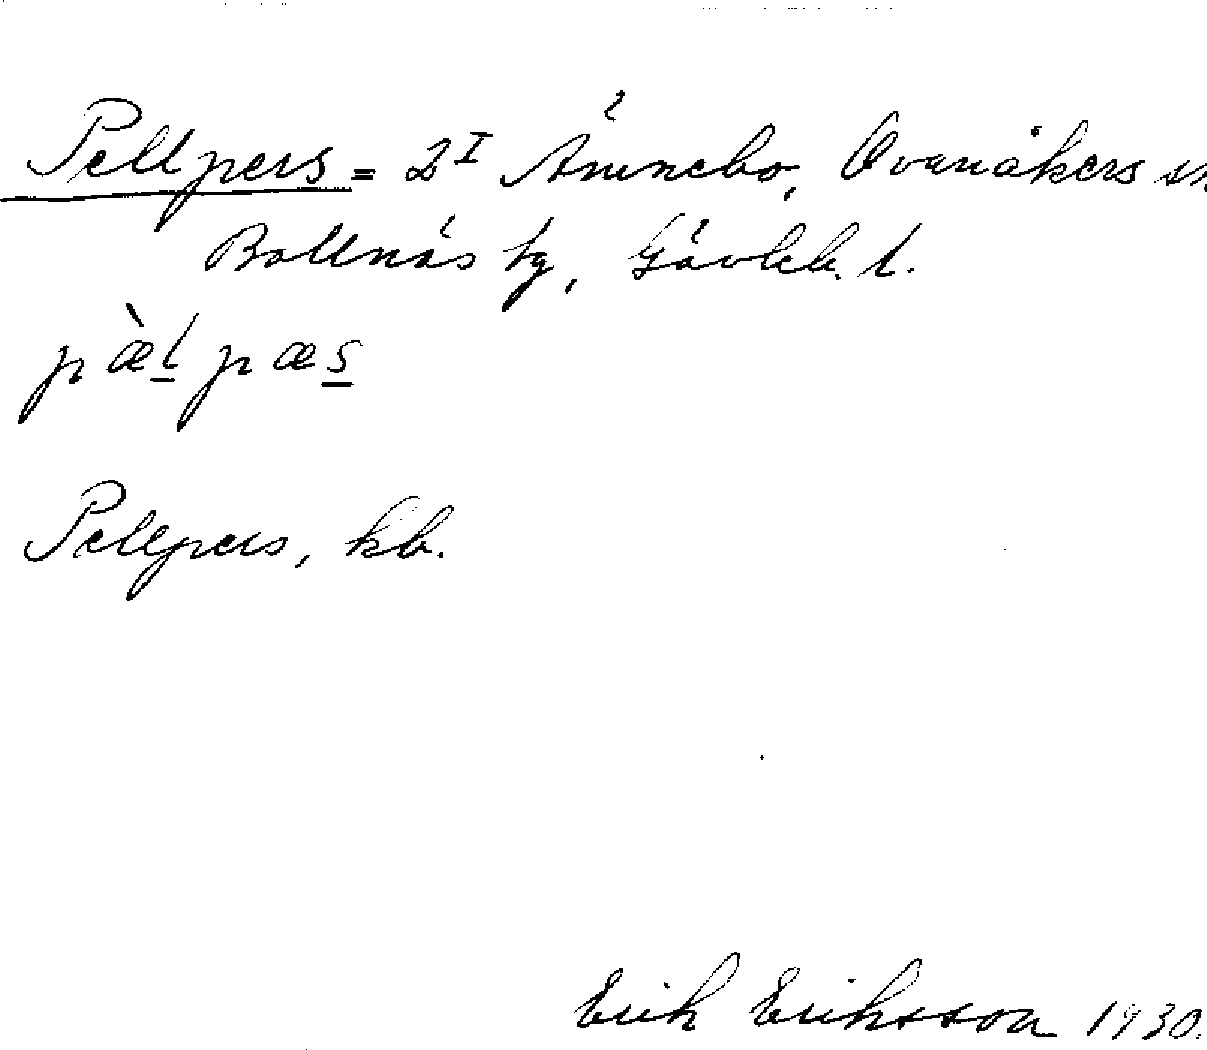 Pellpers = 2I Ämnebo, Ovanåkers sn
Bollnäs tg, Gävleb. l.
pæ̀l̲ pæs̲
Pellpers, kb.
Erik Eriksson 1930.